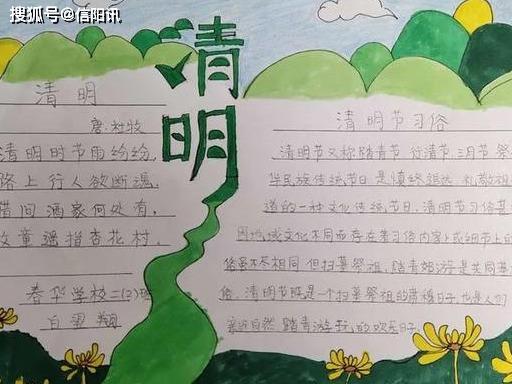 搜狐号@信阳讯
清明
清明
唐·杜牧
清明时节雨纷纷,
路上行人欲断魂,
借问酒家何处有,
牧童遥指杏花村,
春华学校二(2)班
白
翔
清明节习俗
清明节又称踏青节 行清节、三月节 祭
华民族传统节日 是慎终追远 礼敬祖
道的一种文化传统节日,清明节习俗
因地域文化不同而存在着习俗内容上或细节上的
俗虽不尽相同 但扫墓祭祖,踏青郊游是共同基
俗,清明节既是一个扫墓祭祖的肃穆日子 也是人们
亲近自然 踏青游玩的欢乐日子